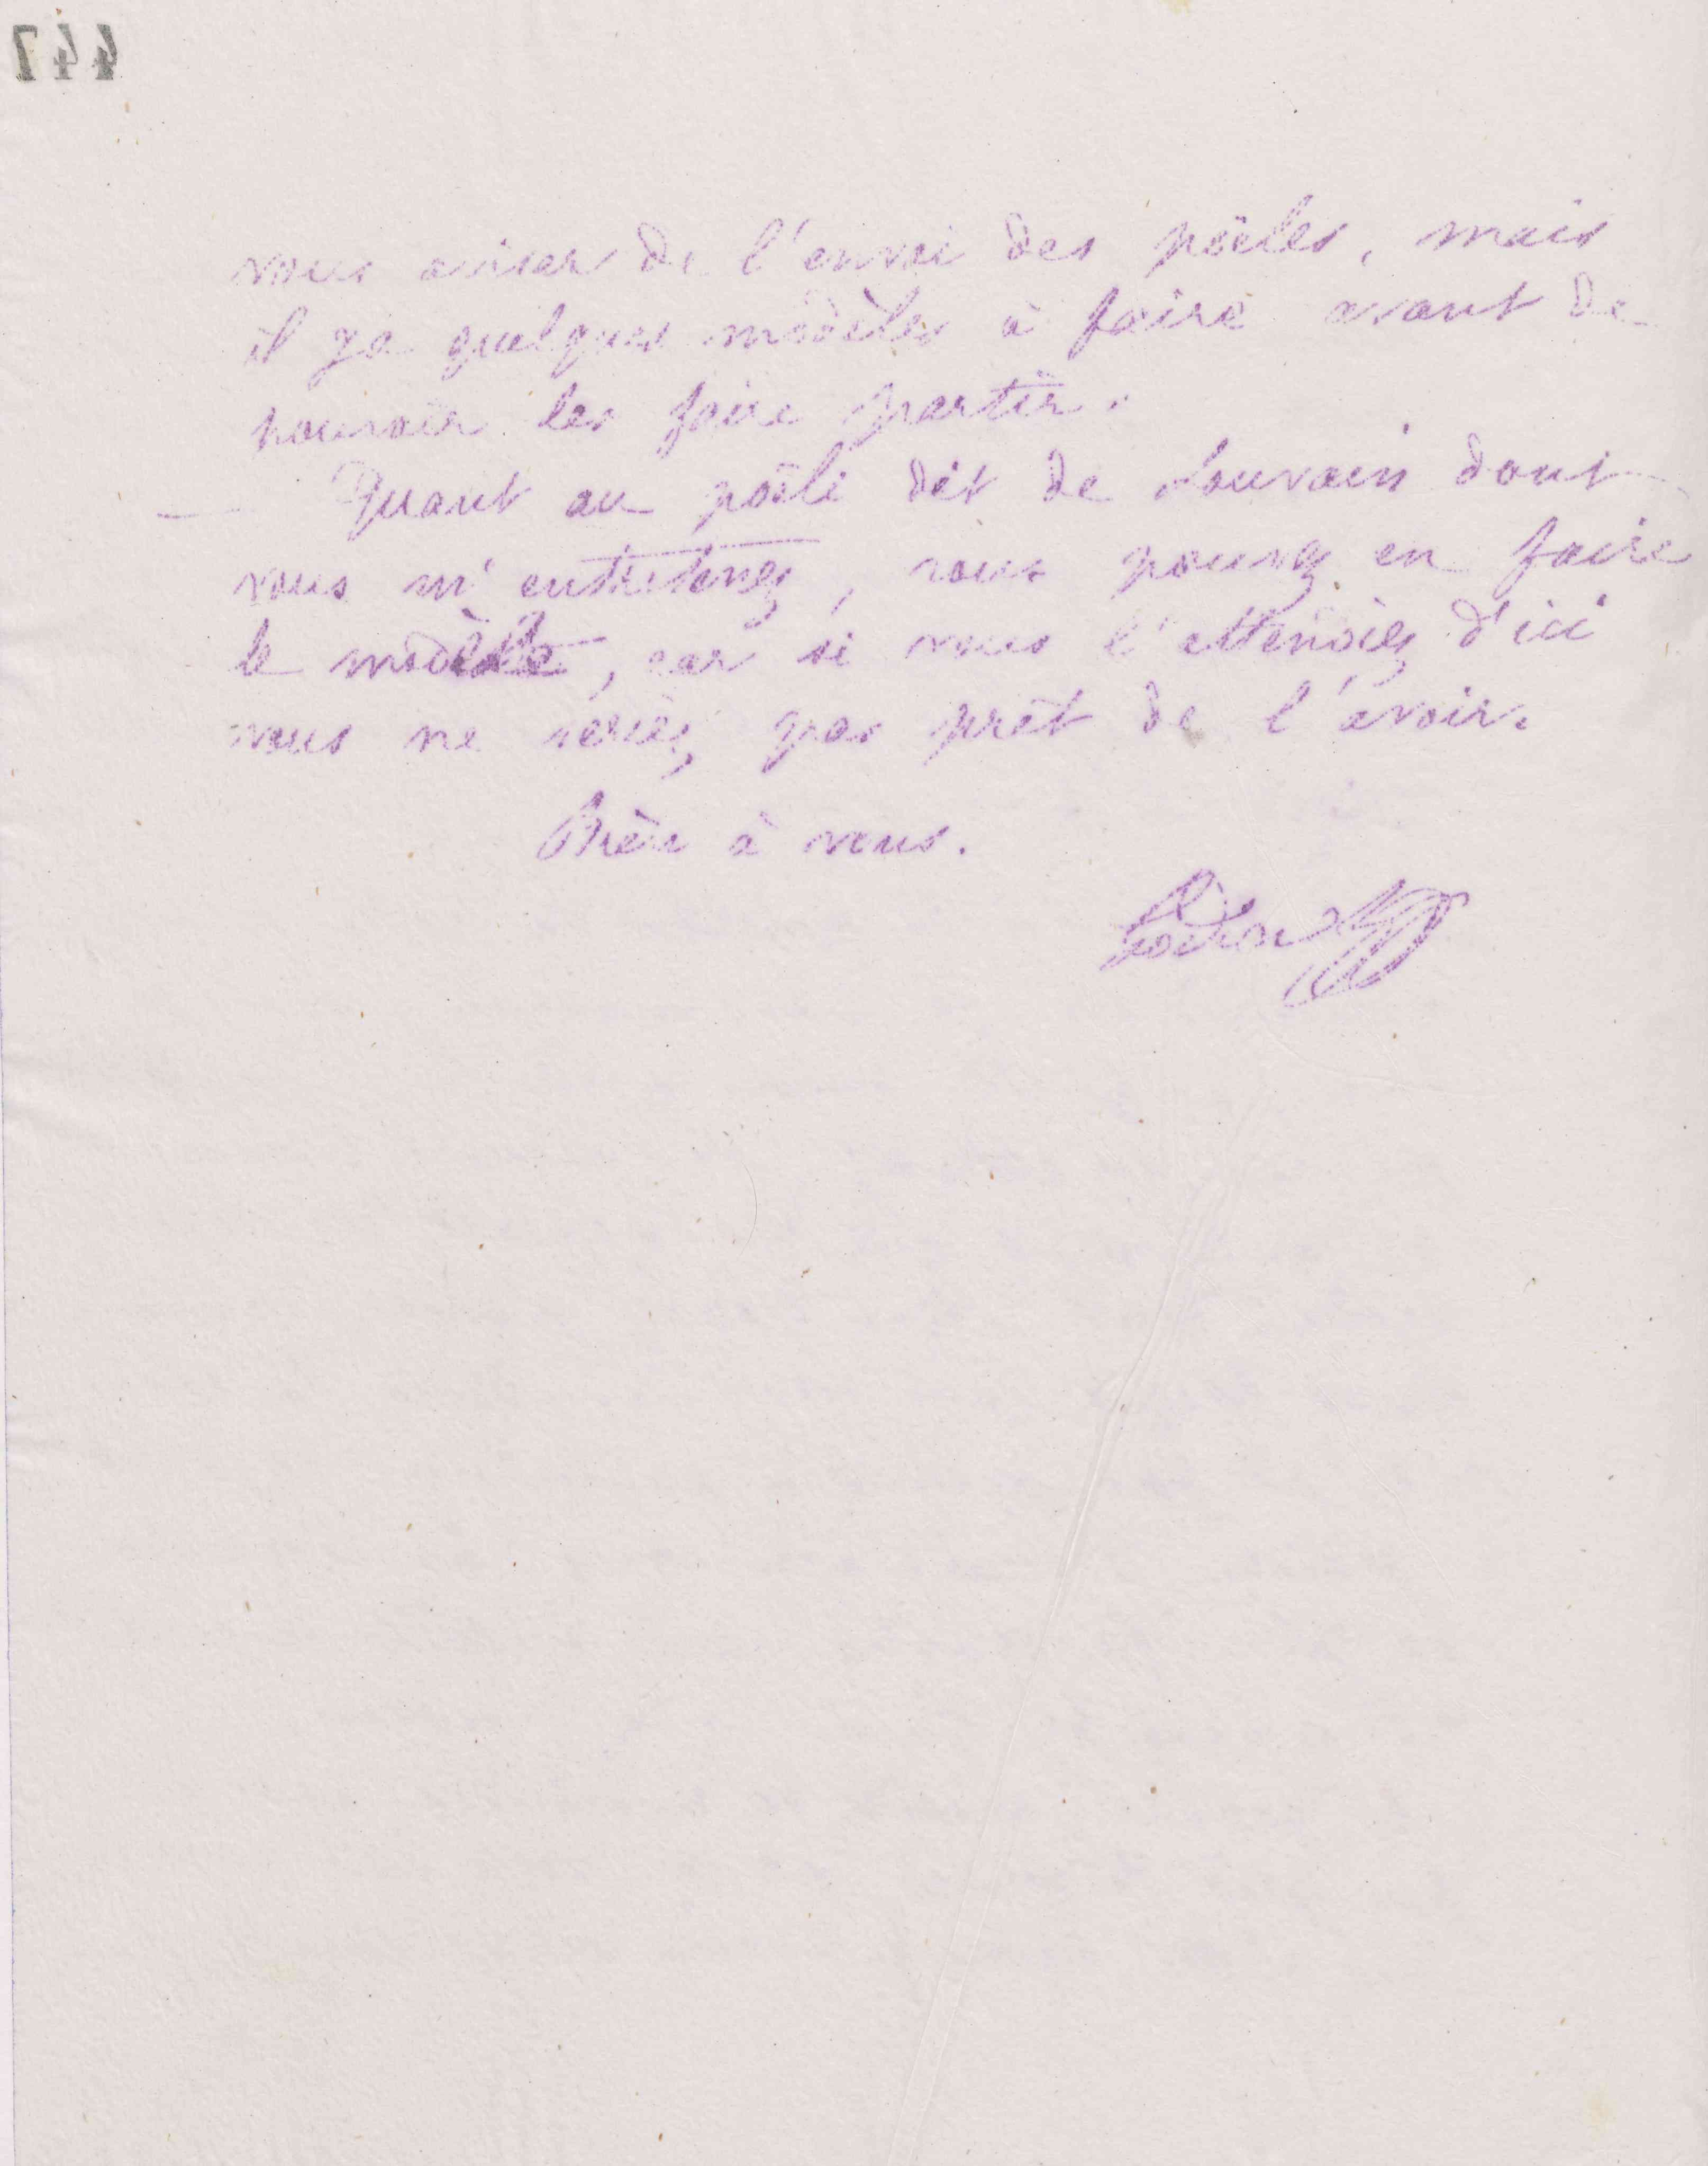 447
vous aviser de l'envoi des poëles, mais
il y a quelques modèles à faire avant de
pouvoir les faire partir.
— Quant au poële dit de Louvain dont
vous m'entretenez, vous pouvez en faire
le modèle, car si vous l'attendiez d'ici
vous ne seriez pas prêt de l'avoir.
Bien à vous.
Godin